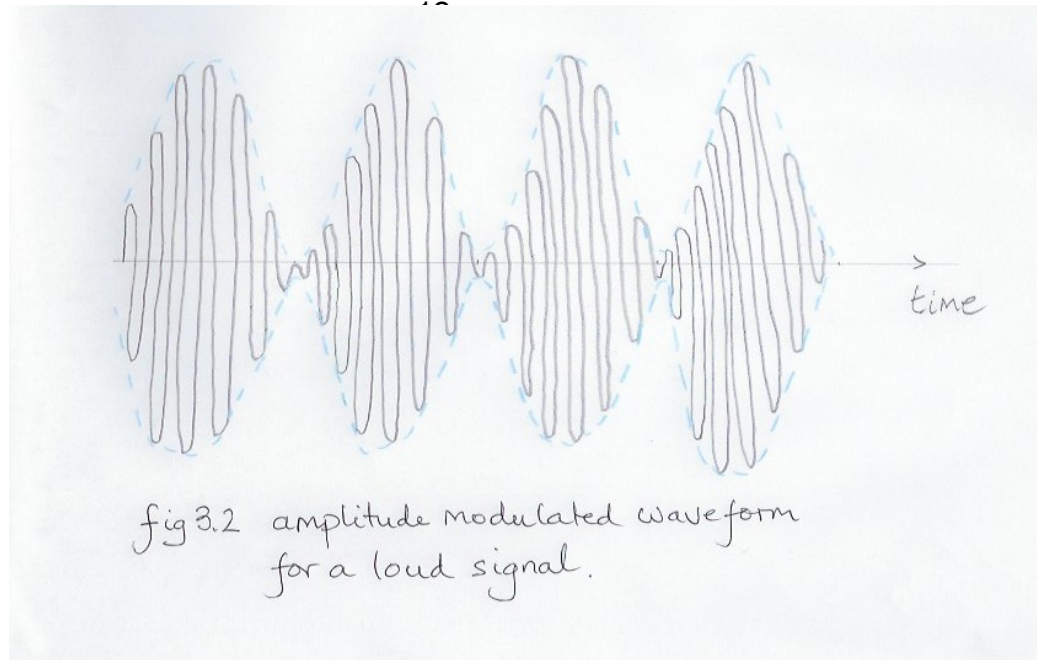 time
fig 3.2 amplitude modulated waveform
for a loud signal.